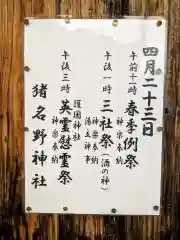 四月二十三日
午前十一時
春季例祭
神楽奉納
午後一時
三社祭（酒の神）
神楽奉納
湯立神事
護国神社
午後三時
英霊慰霊祭
神楽奉納
猪名野神社